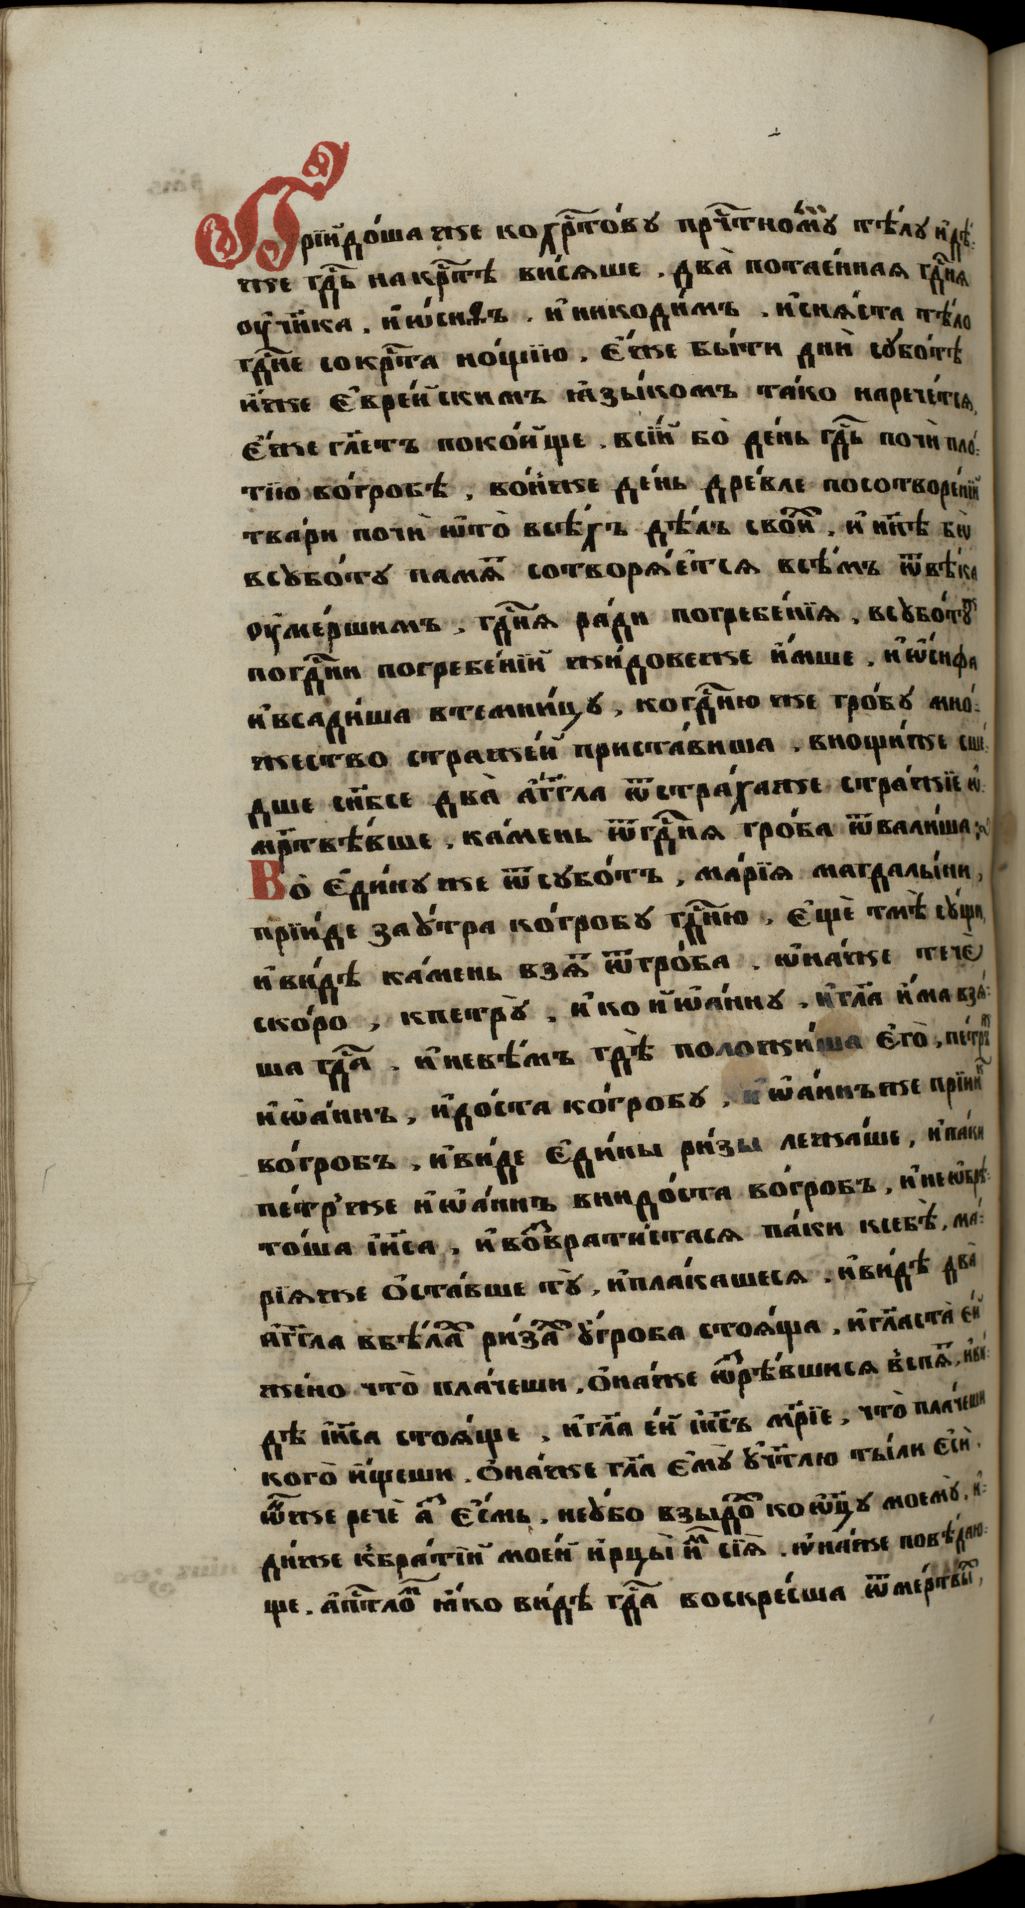 Прїидо́ша же ко хрⷭ҇то́ву прⷱ҇тно́мꙋ тѣ́лу и҆дѣ́:
же гдⷭ҇ь на крⷭ҇тѣ̀ ви́сяше , два̀ потае́нная гдⷭ҇ня
оу҆чн҃ка . и҆ і҆ѡ́сиѳъ . и҆ никоди́мъ . и҆ сня́ста тѣ́ло
гдⷭ҇не со крⷭ҇та̀ но́щїю . є҆́же бы́ти дни̂ субо́тѣ
и҆́же є҆вре́йскимъ ꙗ҆зы́комъ та́ко нарече́тся,
є҆́же гл҃етъ поко́йще . всі́й бо̀ де́нь гдⷭ҇ь почѝ пло́:
тїю во́ гробѣ , во́ньже де́нь дре́вле по сотворе́нїи
тва́ри почѝ ѿ всѣ́хъ дѣ́лъ свои́ⷯ , и҆ нн҃ѣ бо
в субо́ту памяⷮ сотворя́є҆тся всѣ́мъ ѿ вѣ́ка
оу҆ме́ршимъ , гдⷭ҇ня ра́ди погребе́нїя , в субо́тꙋ ж
по гдⷭ҇ни погребе́нїи жи́довеже и҆́мше , и҆ і҆ѡ́сифа
и҆ всади́ша в темни́цу , ко гдⷭ҇ню же гро́бу мно́:
жество страже́й приста́виша . в нощи́же сше́:
дше с нб҃се два̀ а҆́гг҃ла ѿ стра́ха же стра́жїе ѡ:
мр҃твѣ́вше , ка́мень ѿ гдⷭ҇ня гро́ба ѿвали́ша ;
Во̀ є҆ди́ну же ѿ субо́тъ , ма́рїя магдалы́ни ,
прїи́де зау́тра ко́ гробу гдⷭ҇ню , є҆щѐ тмѣ̀ су́щи,
и҆ ви́дѣ ка́мень взяⷮ ѿ гро́ба . ѡ҆на́же течѐ
ско́ро , к петру̀ , и҆ ко и҆ѡ҆а́нну , и҆ гл҃а и҆́ма взя́:
ша гдⷭ҇а . и҆ не вѣ́мъ гдѣ̀ положи́ша є҆го̀ , пе́тръ ж
и҆ і҆ѡ҆а́ннъ , и҆до́ста ко́ гробу , и҆ і҆ѡ҆а́ннъ же прїни́ⷦ
во́ гробъ , и҆ ви́де є҆ди́ны ри́зы лежа́ше , и҆ па́ки
пе́тръ же и҆ і҆ѡ҆а́ннъ внидо́ста во́ гробъ , и҆ не ѡ҆брѣ:
то́ша і҆и҃са , и҆ воⷥврати́стася па́ки к себѣ̀ , ма́:
рїя же ѻ҆ста́вше ту̀ , и҆ пла́кашеся . и҆ ви́дѣ два̀
а҆́гг҃ла в бѣ́лаⷯ ри́заⷯ у́ гроба стоя́ща , и҆ гл҃аста є҆́й
же́но что̀ пла́чеши , ѻ҆на́же ѡ҆ⷠрѣ́вшися вспяⷮ , и҆ ви́:
дѣ і҆и҃са стоя́ще , и҆ гл҃а є҆́й і҆и҃съ мр҃їе , что̀ пла́чеши
кого̀ и҆́щеши . ѻ҆на́же гл҃а є҆му̀ учт҃лю ты́ ли є҆сѝ .
ѻ҆́нⷤже речѐ а҆ⷥ є҆́смь , не у́бо взыдоⷯ ко ѻ҆ц҃у моему̀ , и҆:
ди́же к бра́тїи мое́й и҆ рцы̀ и҆́ⷨ сїя̀ . ѡ҆на́же повѣ́даю:
ще . а҆пⷭ҇тлоⷨ ꙗ҆́ко ви́дѣ гдⷭ҇а воскре́сша ѿ ме́ртвыⷯ ,